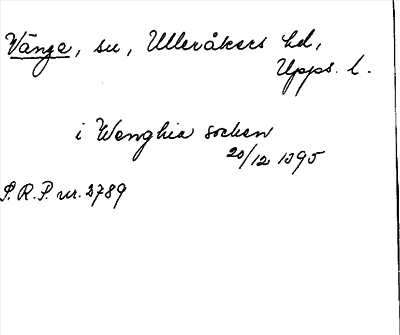 Vänge, sn, Ulleråkers hd,
Upps. l.
i Wenghia socken
20/12 1395
S.R.P. nr. 2789